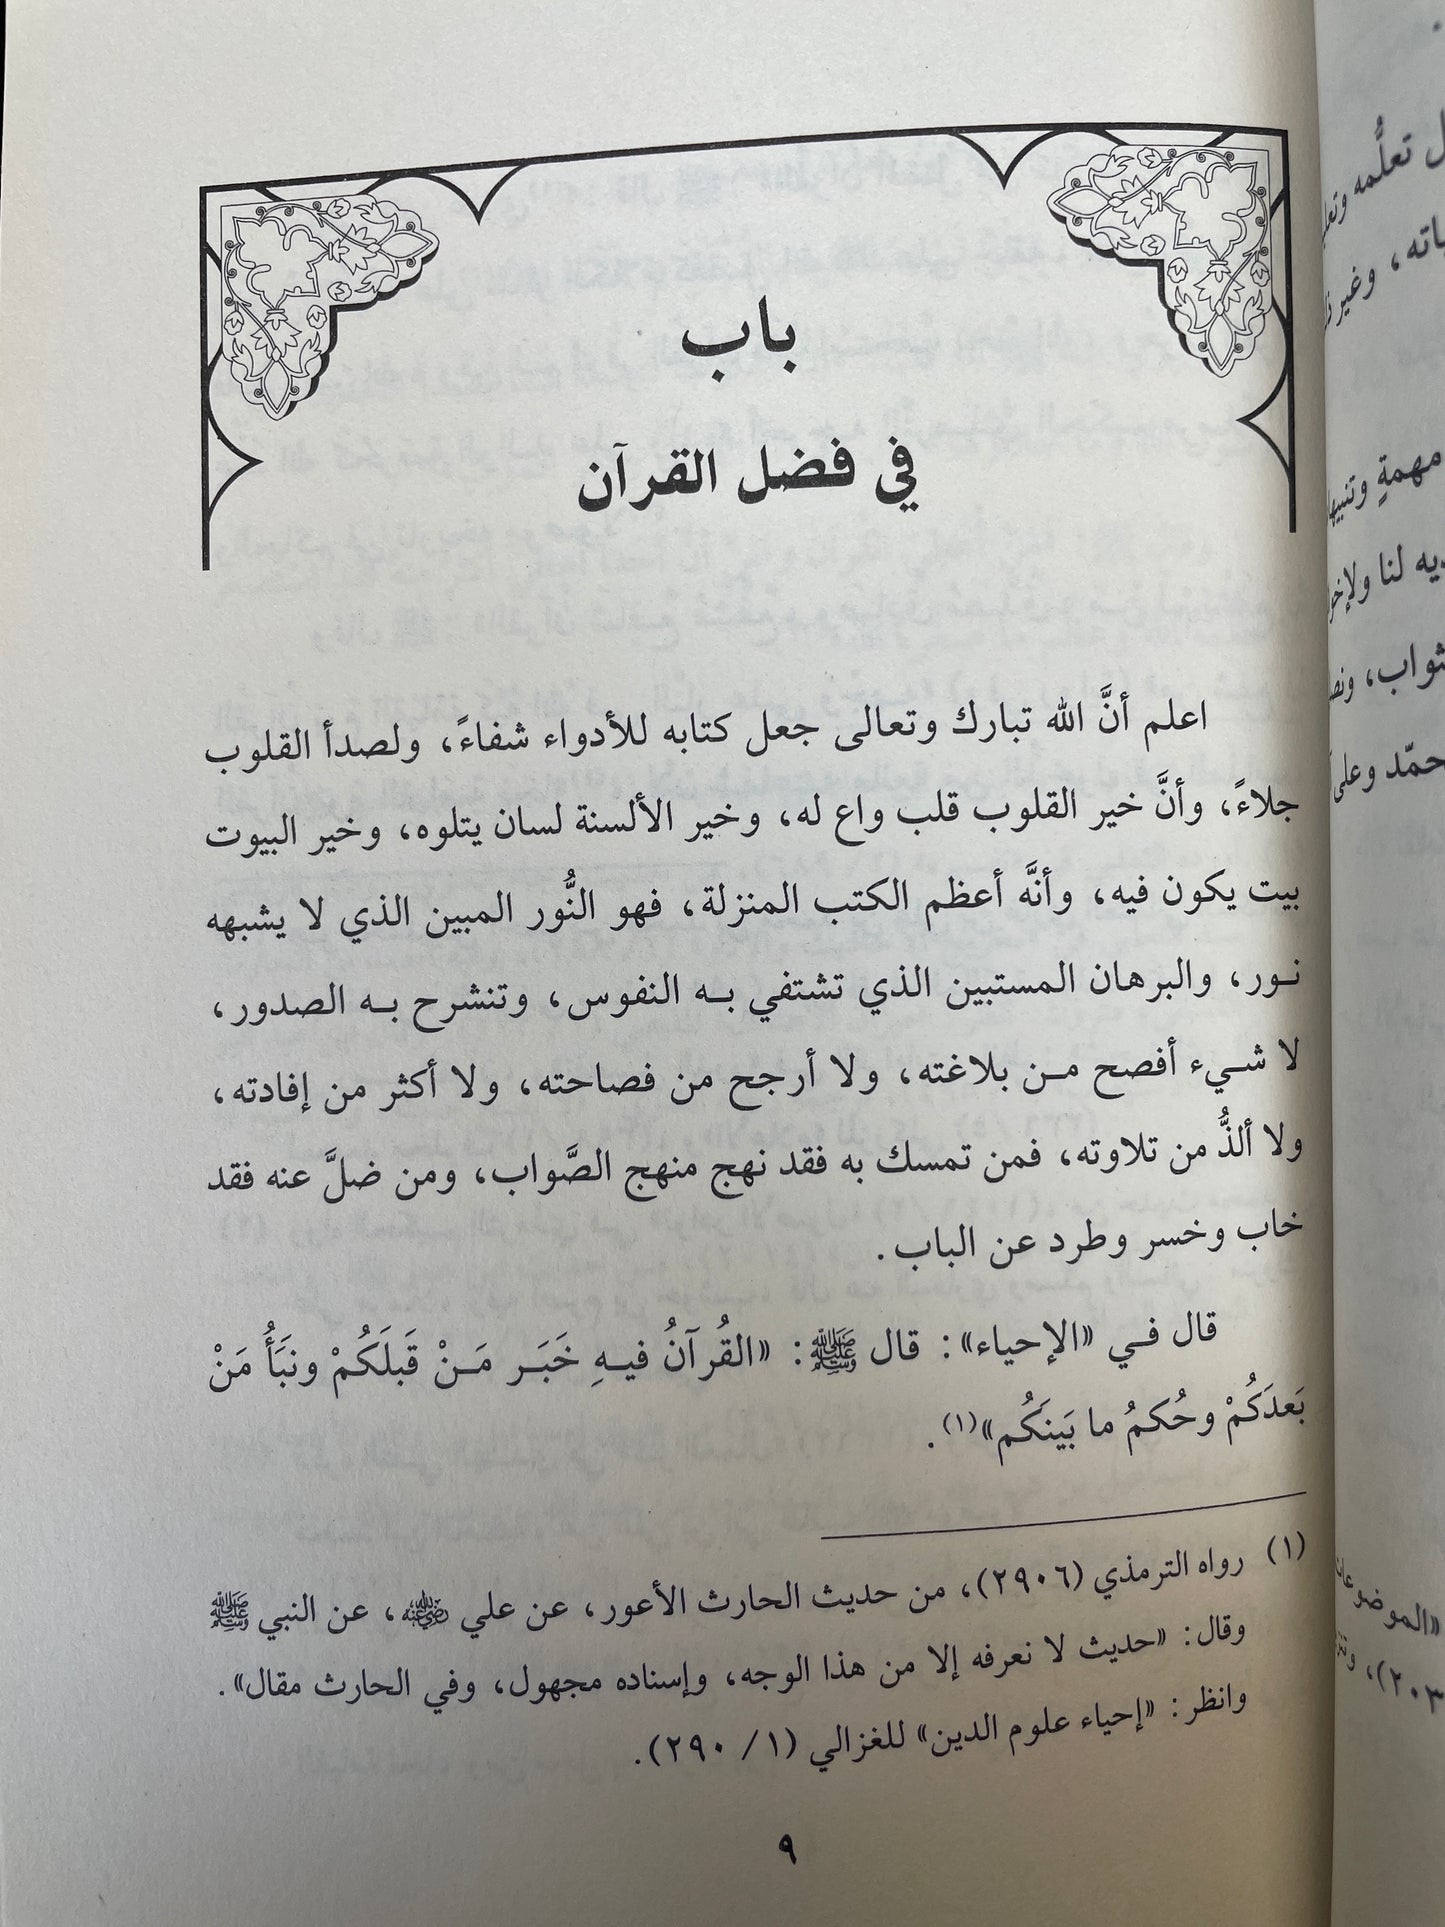 باب
في فضل القرآن
اعلم أنَّ الله تبارك وتعالى جعل كتابه للأدواء شفاءً، ولصدأ القلوب
جلاءً، وأنَّ خير القلوب قلب واع له، وخير الألسنة لسان يتلوه، وخير البيوت
بيت يكون فيه، وأنَّه أعظم الكتب المنزلة، فهو النُّور المبين الذي لا يشبهه
نـور، والبرهان المستبين الذي تشتفي بـه النفوس، وتنشرح بـه الصدور،
لا شـيء أفصح مـن بلاغته، ولا أرجح من فصاحته، ولا أكثر من إفادته،
ولا ألذُّ من تلاوته، فمن تمسك به فقد نهج منهج الصَّواب، ومن ضلَّ عنه فقد
خاب وخسر وطرد عن الباب.
قال فـي «الإحياء»: قال ﷺ: «القُرآنُ فيـهِ خَبَـر مَـنْ قَبلَكُمْ ونبَأُ مَنْ
بَعدَكُمْ وحُكمُ ما بَينَكُم»(١).
(١) رواه الترمذي (٢٩٠٦)، من حديث الحارث الأعور، عن علي رضي الله عنه، عن النبي ﷺ
وقال: «حديث لا نعرفه إلا من هذا الوجه، وإسناده مجهول، وفي الحارث مقال».
وانظر: «إحياء علوم الدين» للغزالي (١/ ٢٩٠).
٩
تعلُّمه
وغير
مهمةٍ
لنا